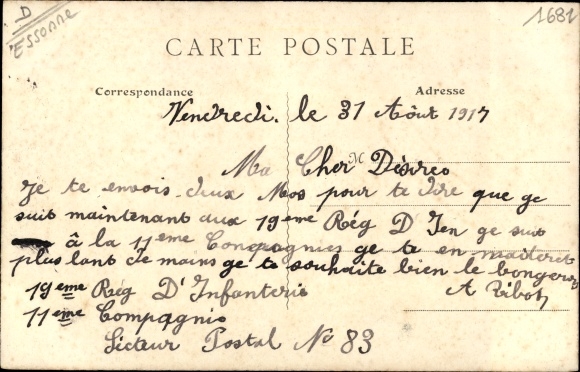 D
Essonne
1681
CARTE POSTALE
Correspondance
Adresse
Vendredi. le 31 Août 1917
M
Ma Cher Désires
Je te envois deux Mos pour te dire que ge
suit maintenant aux 19eme Rég D'Ien ge suit
à la 11eme Compagnies ge te en maiteret
plus lant de mains ge te souhaite bien le bongeres
19eme Reg D'Infanteris
A Ribot
11eme Compagnis
Secteur Postal No 83